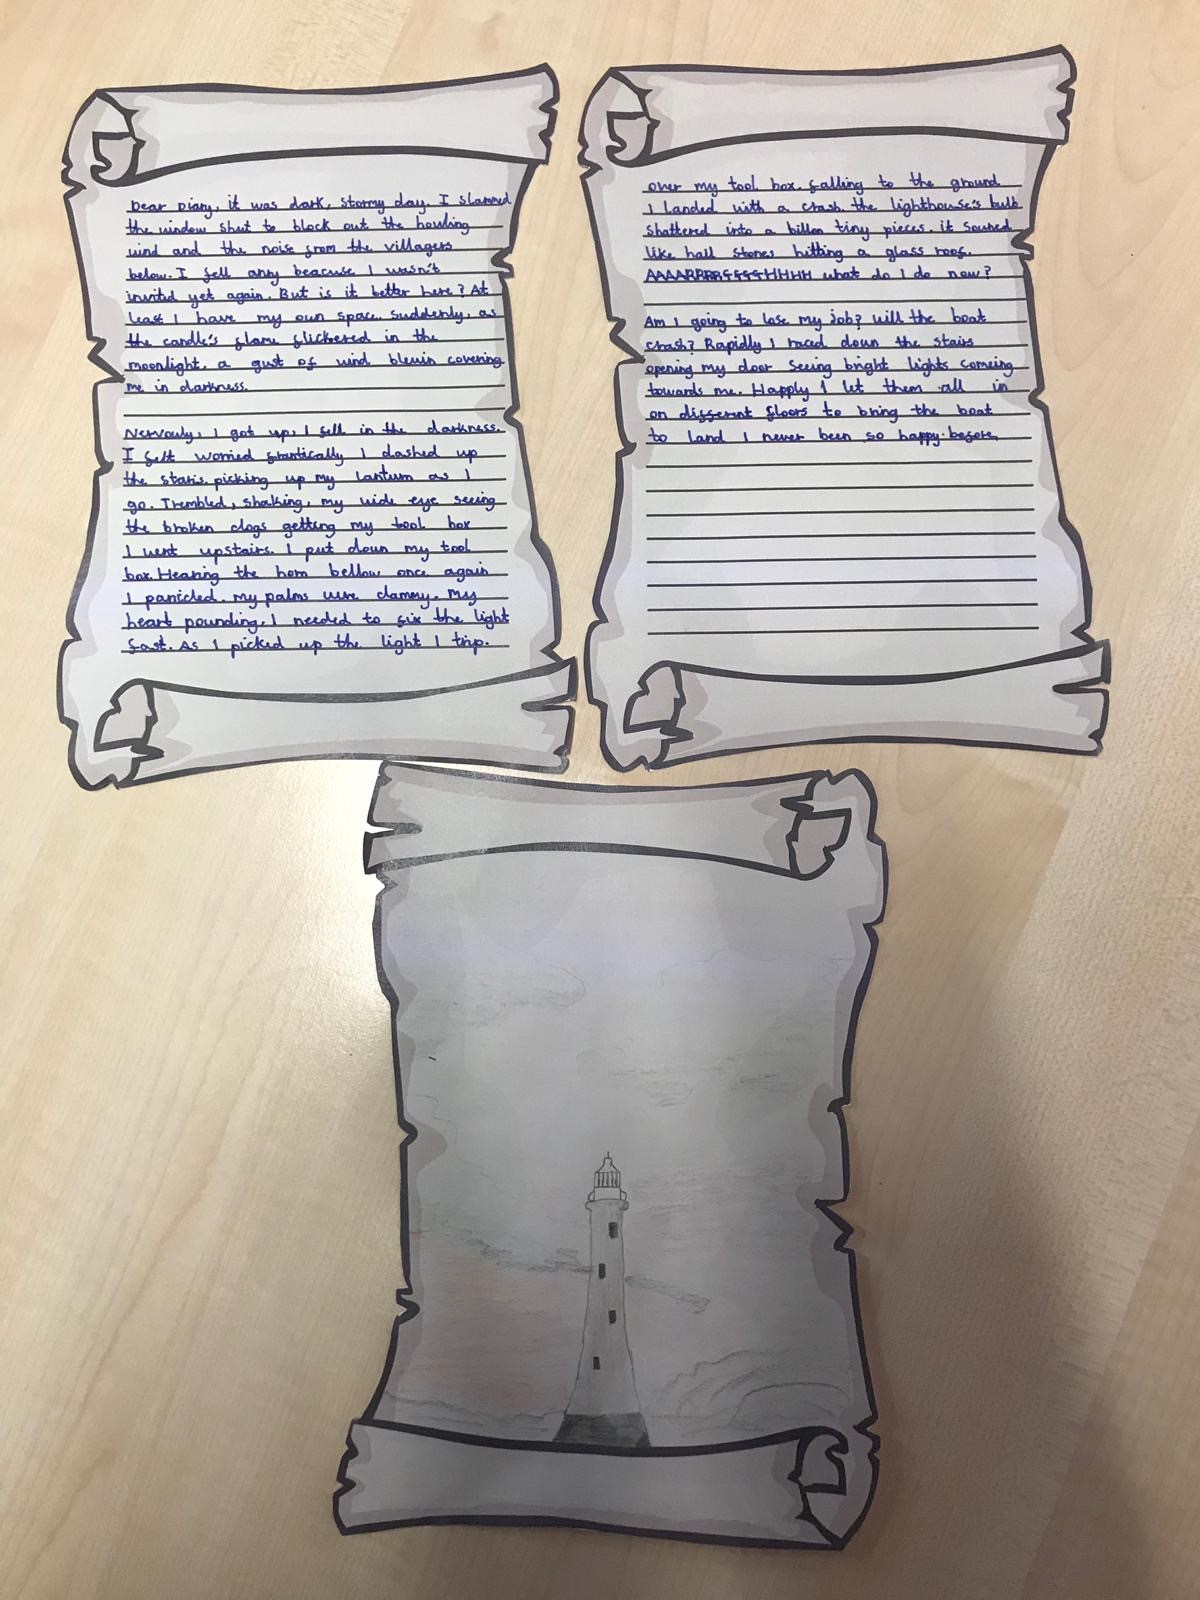 Dear Diary, it was dark, stormy day. I slammed
the window shut to block out the howling
wind and the noise from the villagers
below. I fell anry beacuse I wasn't
invited yet again. But is it better here? At
least I have my own space. Suddenly, as
the candle's flame flickered in the
moonlight, a gust of wind blewin covering
me in darkness.
Nervouly, I got up, I fell in the darkness.
I felt worried frantically I dashed up
the staris picking up my lantum as I
go. Trembled, shalking, my wide eye seeing
the broken clogs getting my tool box
I went upstairs. I put down my tool
box. Hearing the horn bellow once again
I panicled. my palms were clammy. My
heart pounding. I needed to fix the light
fast. As I picked up the light I trip.
over my tool box. falling to the ground
I landed with a crash. the lighthouse's bulb
shattered into a billon tiny pieces. it souned
like hall stones hitting a glass roof.
what do I do now?
Am I going to lose my job? Will the boat
crash? Rapidly I raced down the stairs
opening my door seeing bright lights comeing
towards me. Happily I let them all in
on different floors to bring the boat
to land I never been so happy before.